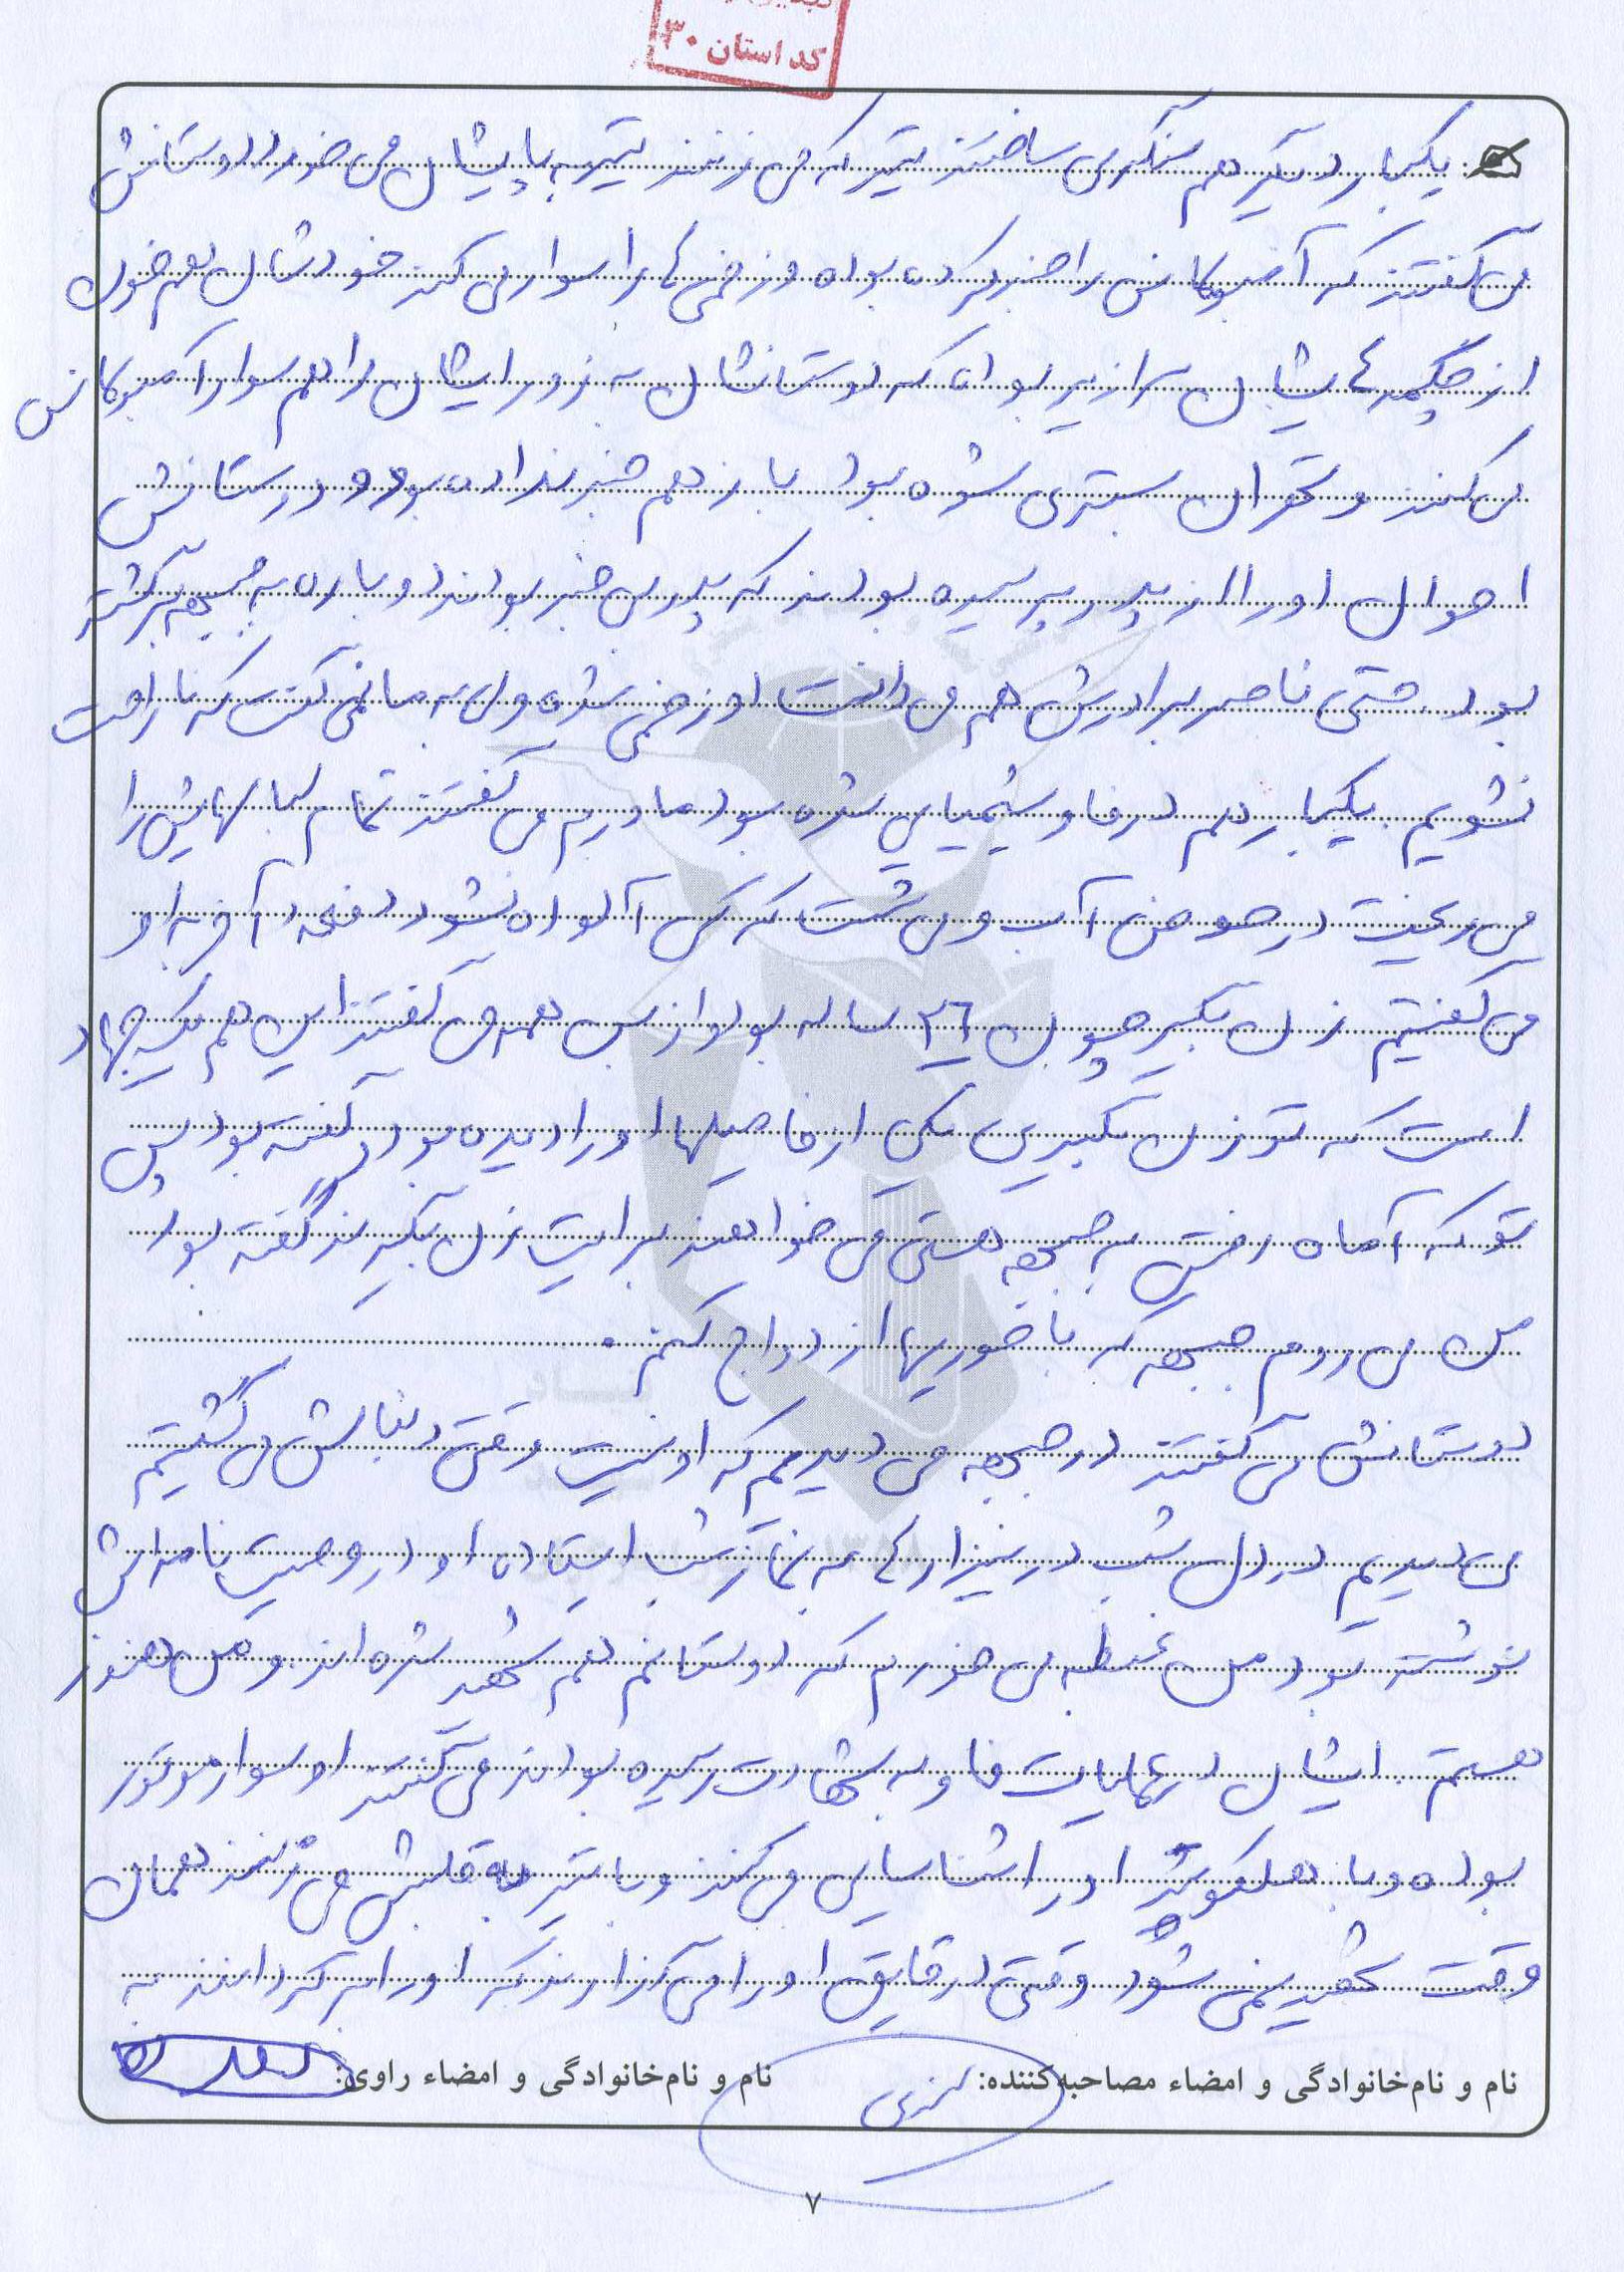 کد استان ۳۰
یکبار دیگر هم سنگری ساختند تیر که می زنند تیر به پایشان می خورد دوستانش
می گفتند که آمبولانس را خبر کرده بوده و زخمی ها را سوار می کند خودشان هم خون
از چکمه هایشان سرازیر بوده که دوستانشان به زور ایشان را هم سوار آمبولانس
می کنند و تهران بستری شده بود باز هم خبر نداده بود و دوستانش
احوال او را از پدر پرسیده بودند که پدر بی خبر بودند دوباره به جبهه برگشته
بود حتی ناصر برادرش هم می دانست او زخمی شده ولی به ما نمی گفت که ناراحت
نشویم یکبار هم در فاو شیمیایی شده بود مادرم می گفتند تمام لباسهایش را
می ریخت در حوض آب و می شست که کسی آلوده نشود دفعه آخر به او
می گفتیم زن بگیر چون ۲۶ ساله بود از بس همه می گفتند این هم یک جهاد
است که تو زن بگیری یکی از فامیلها او را دیده بود و گفته بود پس
تو که آماده رفتن به جبهه هستی می خواهند برایت زن بگیرند گفته بود
من می روم جبهه که با حوریها ازدواج کنم.
دوستانش می گفتند در جبهه می دیدیم که او نیست وقتی دنبالش می گشتیم
می دیدیم در دل شب در نیزارها به نماز شب ایستاده او در وصیت نامه اش
نوشته بود من غبطه می خورم که دوستانم هم شهید شده اند و من هنوز
هستم. ایشان در عملیات فاو به شهادت رسیده بودند می گفتند او سوار موتور
بوده و با هلیکوپتر او را شناسایی می کنند و با تیر به قلبش می زنند همان
وقت شهید نمی شود وقتی در قایق او را می گذارند که او را برگردانند به
نام و نام‌خانوادگی و امضاء مصاحبه‌کننده: نام و نام‌خانوادگی و امضاء راوی:
۷